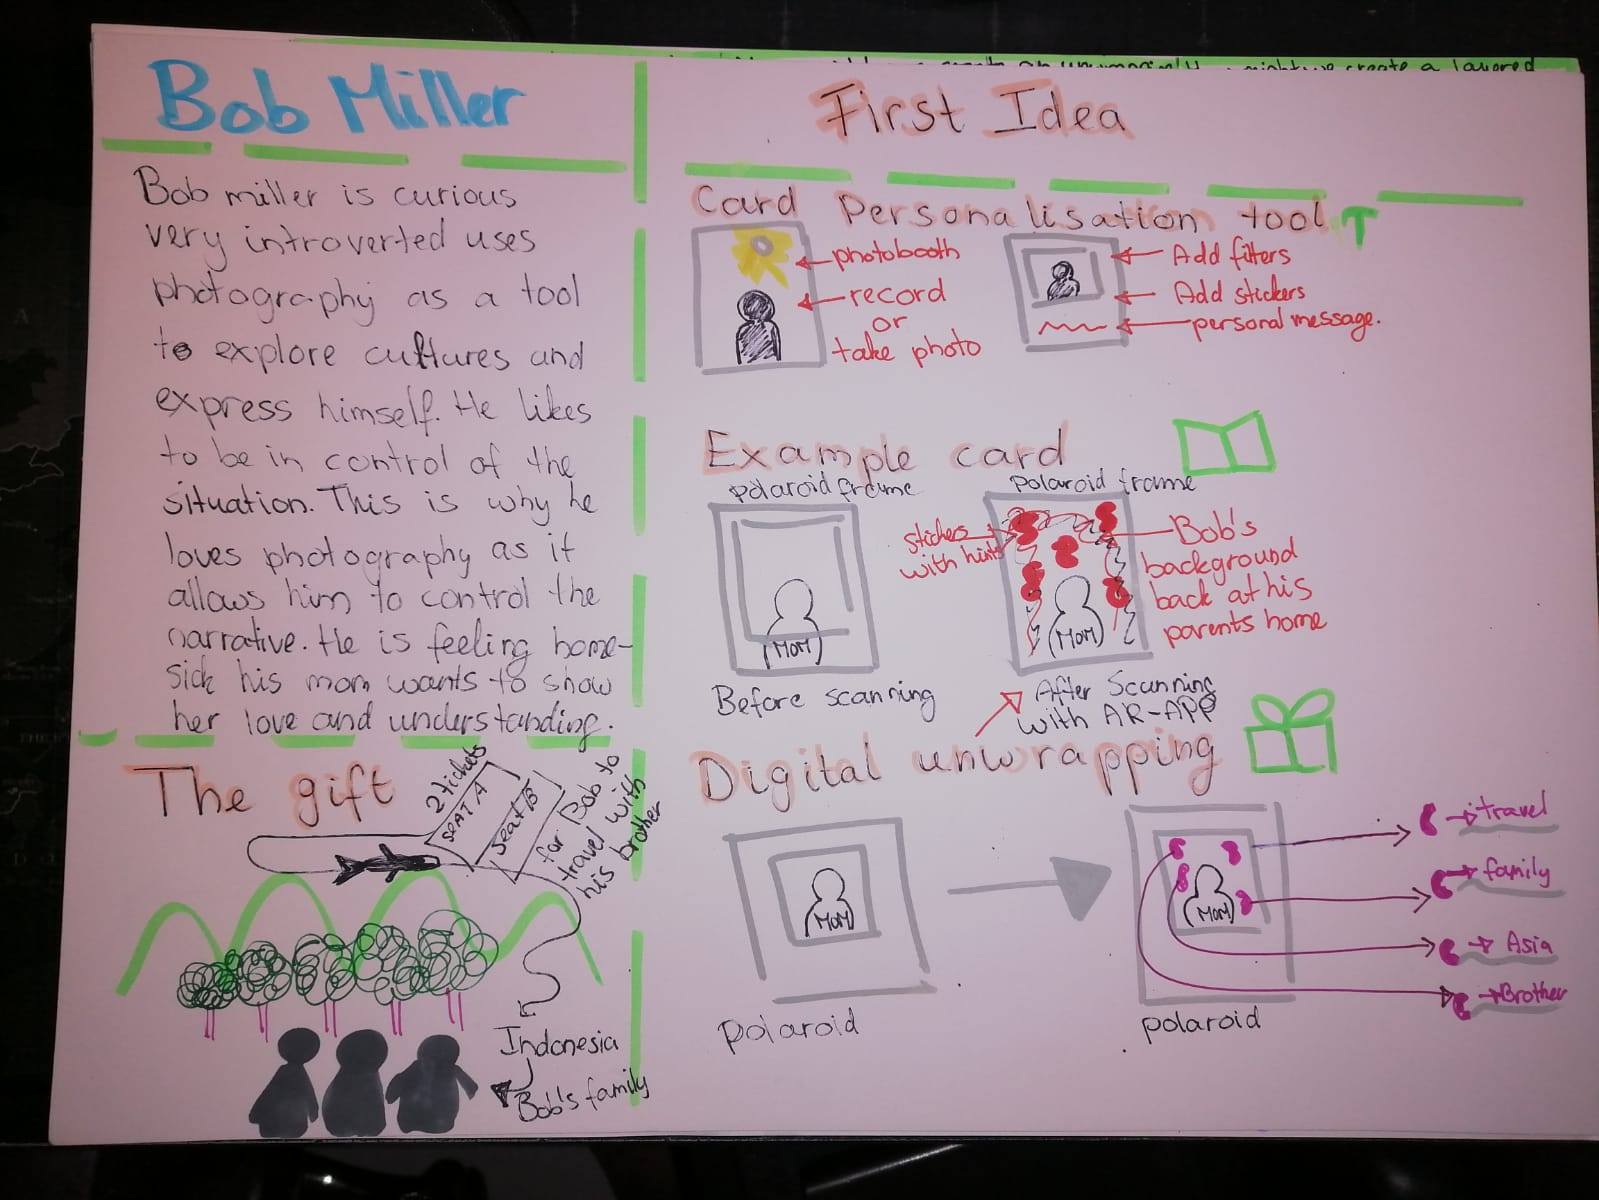 Bob Miller
Bob miller is curious
very introverted uses
photography as a tool
to explore cultures and
express himself. He likes
to be in control of the
situation. This is why he
loves photography as it
allows him to control the
narrative. He is feeling home-
sick his mom wants to show
her love and understanding.
The gift
2 tickets
SEAT A
Seat B
for Bob to
travel with
his brother
Indonesia
Bob's family
First Idea
Card Personalisation tool
photobooth
record
or
take photo
Add filters
Add stickers
personal message.
Example card
polaroid frame
MOM
Before scanning
polaroid frame
stickers
with hints
MOM
Bob's
background
back at his
parents home
After Scanning
with AR-APP
Digital unwrapping
MOM
polaroid
MOM
polaroid
travel
family
Asia
Brother
create a layered